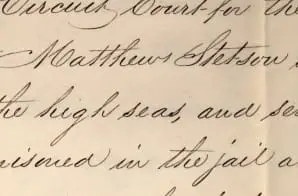 Circuit Court for the
Matthews Stetson
the high seas, and se
risoned in the jail a